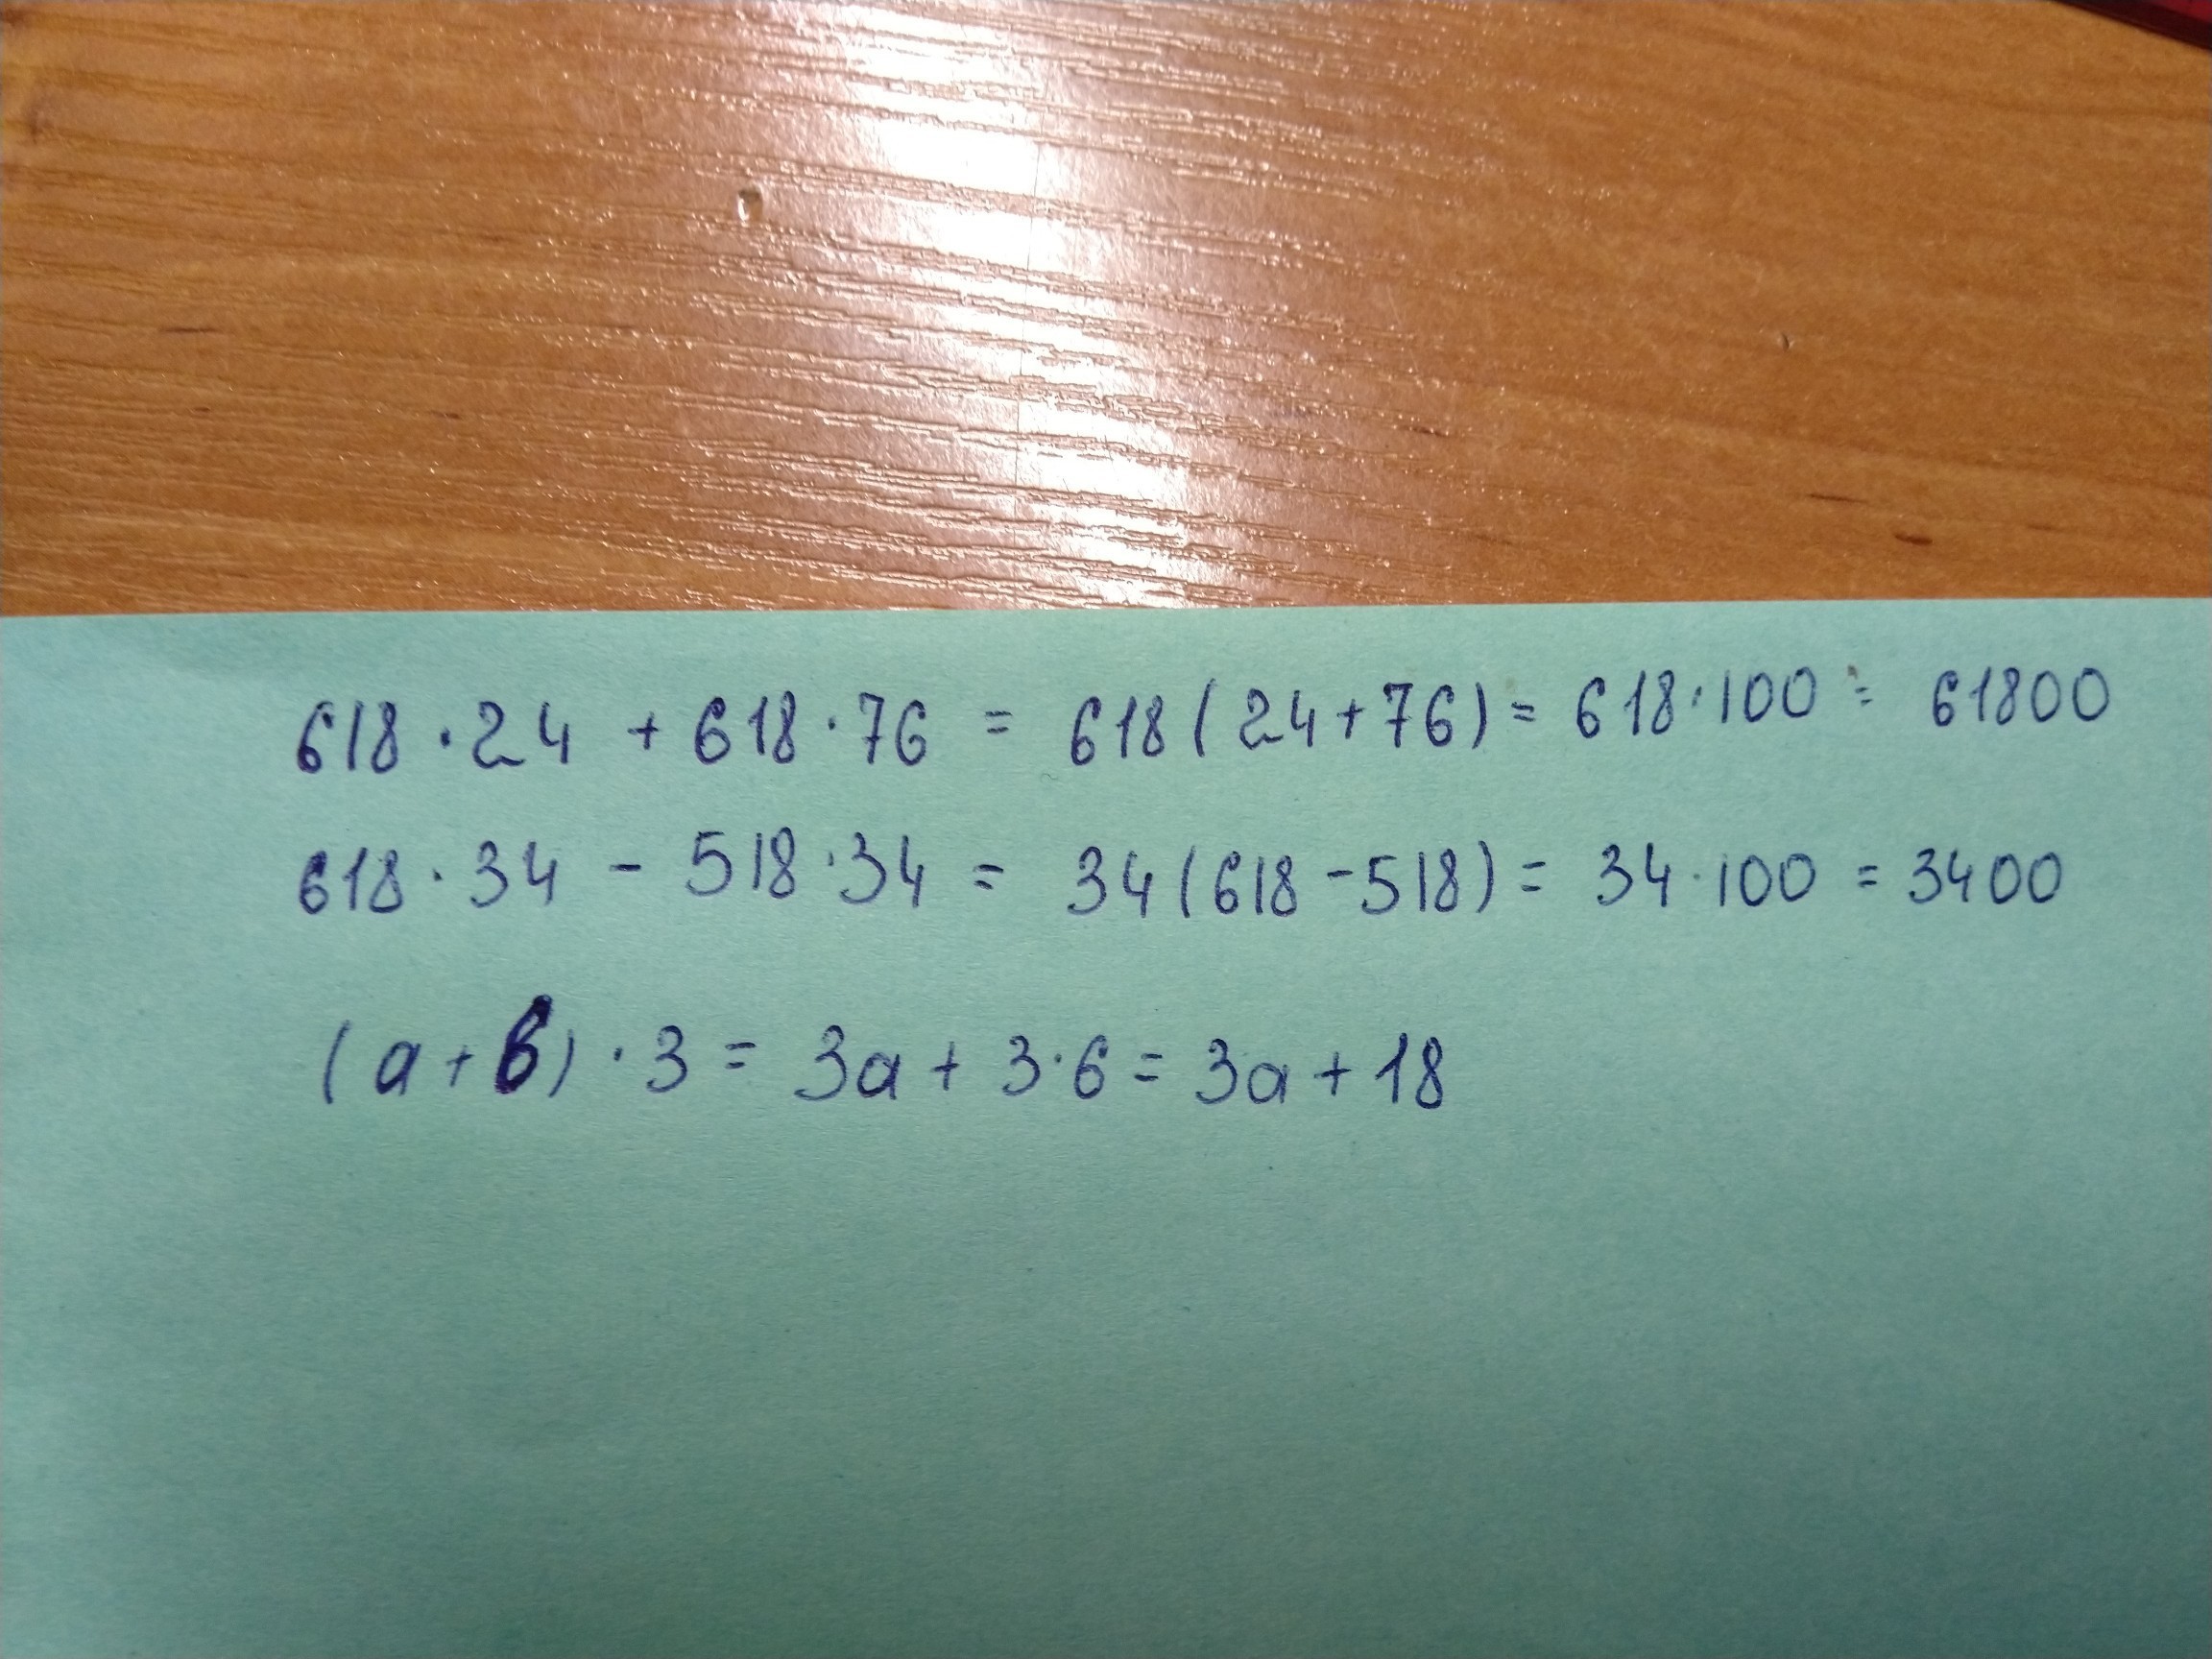 618 · 24 + 618 · 76 = 618 ( 24 + 76 ) = 618 · 100 = 61800
618 · 34 - 518 · 34 = 34 ( 618 - 518 ) = 34 · 100 = 3400
( a + 6 ) · 3 = 3a + 3 · 6 = 3a + 18